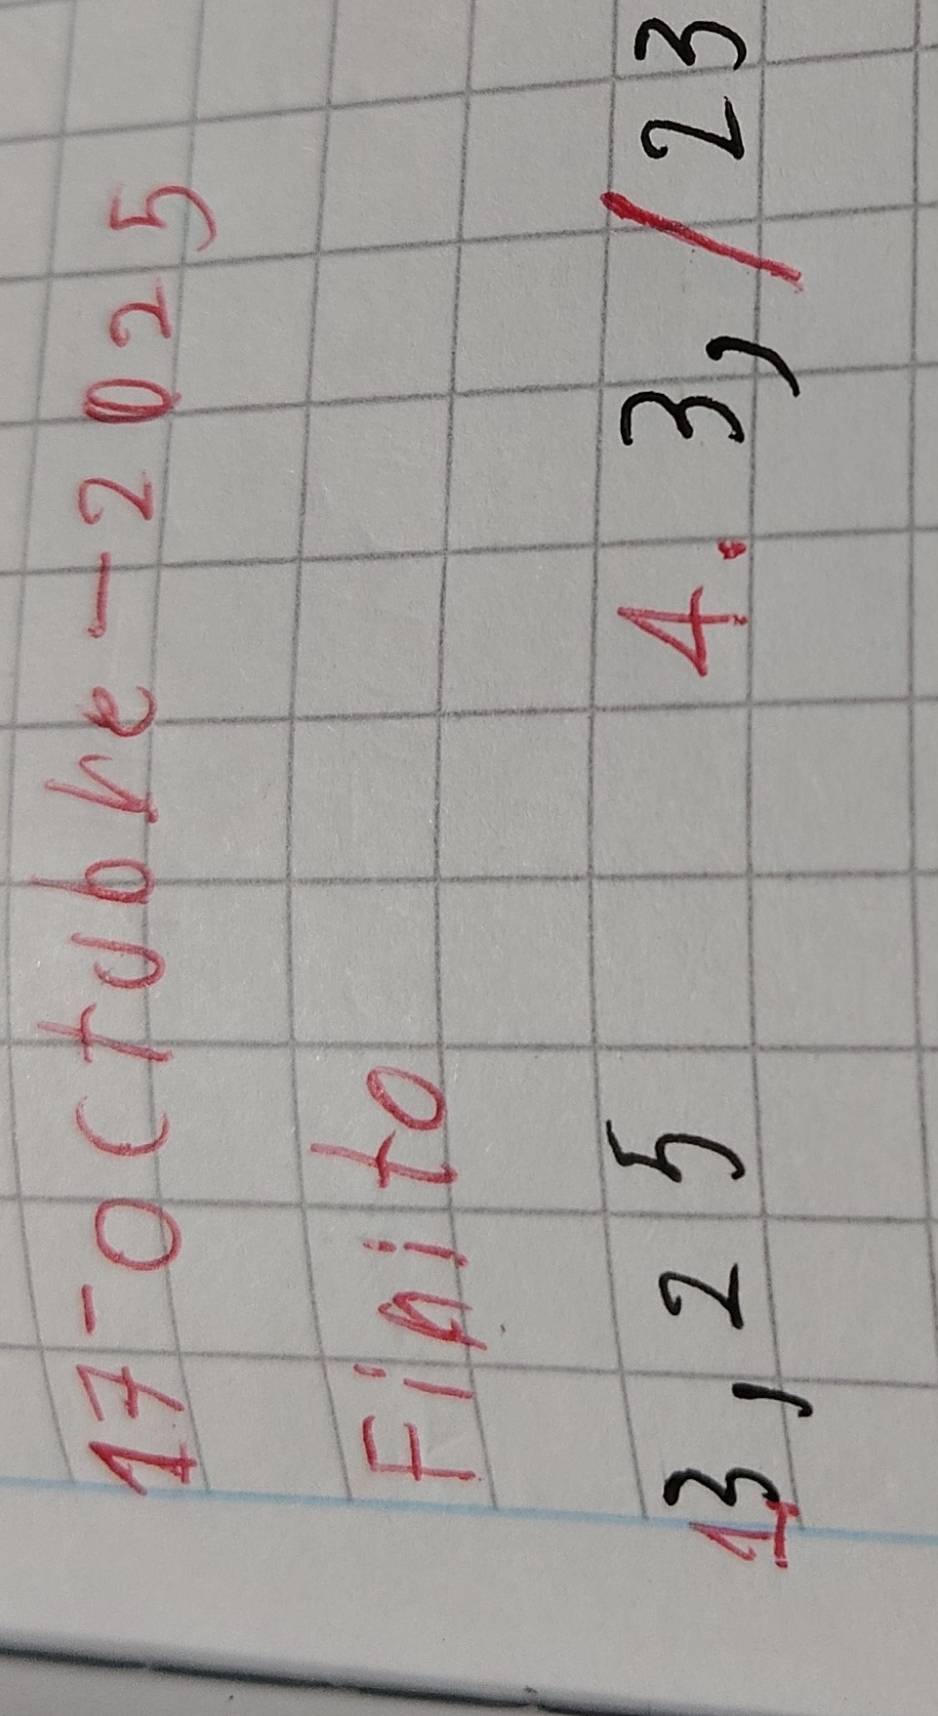 17-Octubre-2025
Finito
1 3,25 4. 3,/23